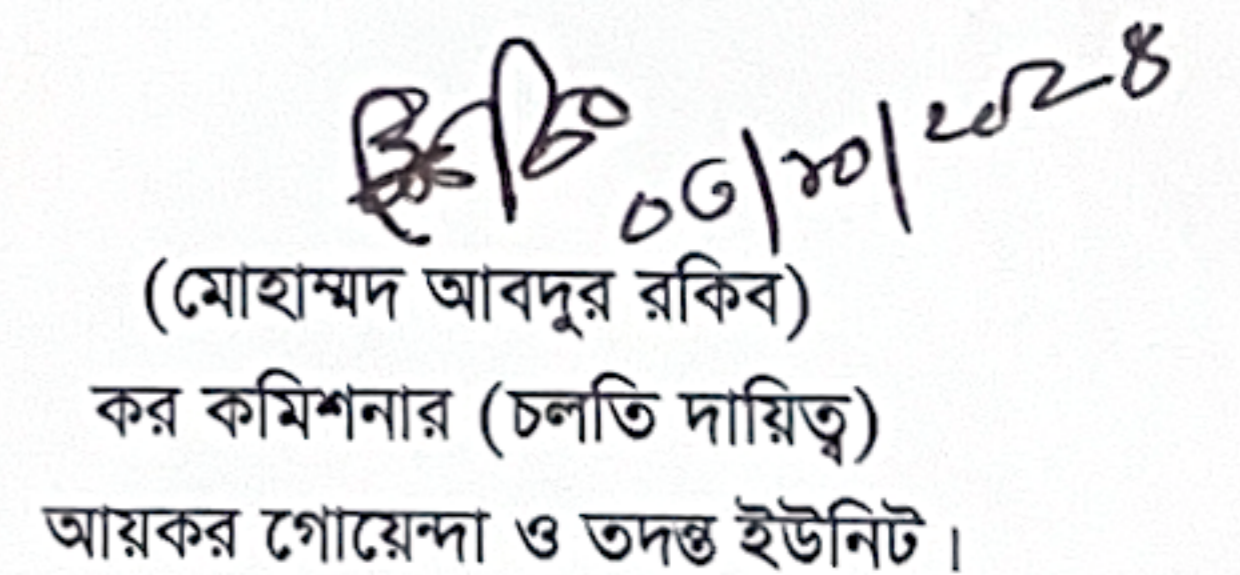 ০৩/১০/২০২৪
(মোহাম্মদ আবদুর রকিব)
কর কমিশনার (চলতি দায়িত্ব)
আয়কর গোয়েন্দা ও তদন্ত ইউনিট।